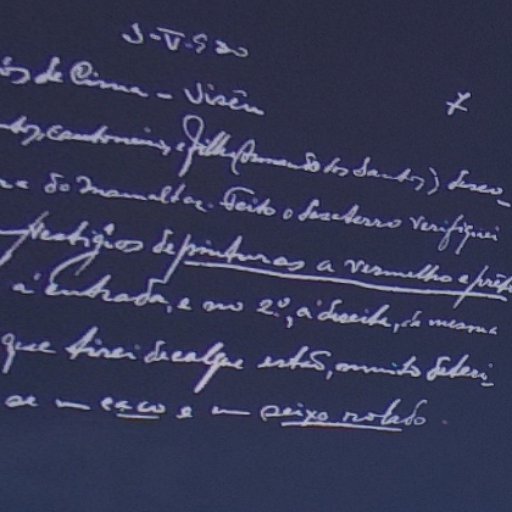 de Cima - Viseu
cantoneiro, e filho (Armando dos Santos) desco-
do Mamaltar. Feito o desaterro verifiquei
vestigios de pinturas a vermelho e prêto
à entrada, e no 2.º, à direita, da mesma
que tirei decalque estão, muito deteri-
se um caco e um seixo rolado.